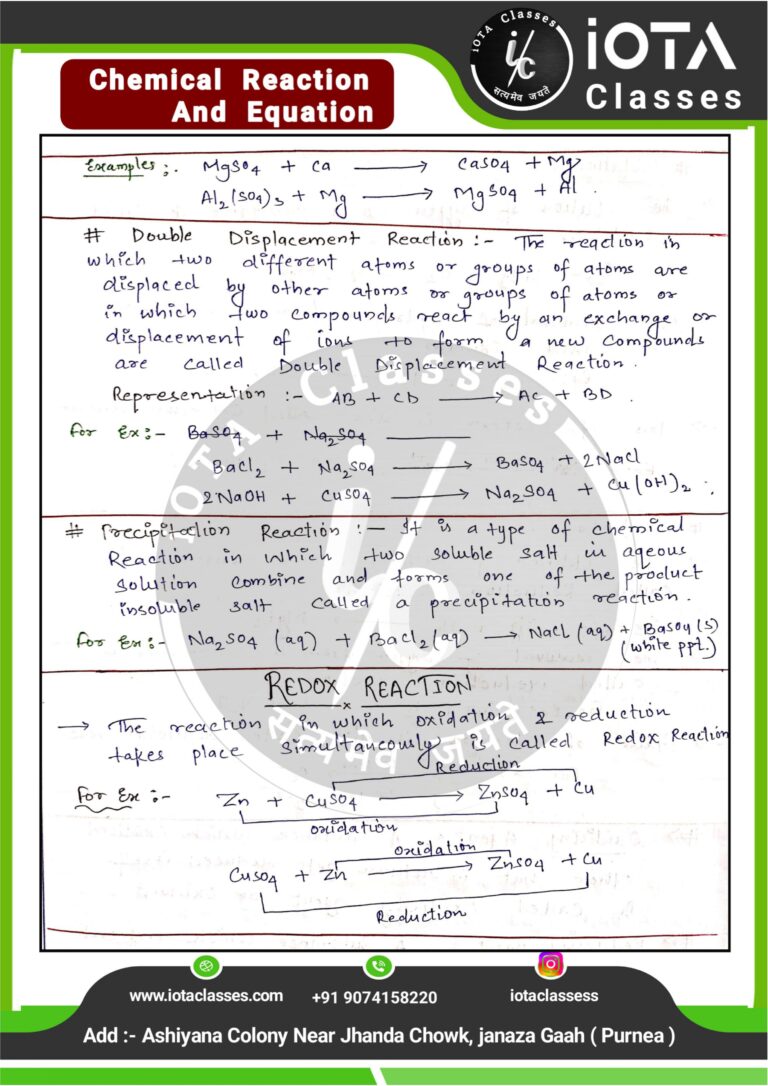 iOTA Classes
i/c
सत्यमेव जयते
iOTA
Classes
Chemical Reaction
And Equation
Examples :- MgSO4 + Ca ⟶ CaSO4 + Mg
Al2(SO4)3 + Mg ⟶ MgSO4 + Al .
# Double Displacement Reaction :- The reaction in
which two different atoms or groups of atoms are
displaced by other atoms or groups of atoms or
in which two compounds react by an exchange or
displacement of ions to form a new compounds
are called Double Displacement Reaction .
Representation :- AB + CD ⟶ AC + BD .
For Ex :- BaSO4 + Na2SO4 ———
BaCl2 + Na2SO4 ⟶ BaSO4 + 2NaCl
2NaOH + CuSO4 ⟶ Na2SO4 + Cu(OH)2 ;
# Precipitation Reaction :- It is a type of chemical
Reaction in which two soluble salt in aqeous
solution combine and forms one of the product
insoluble salt called a precipitation reaction .
For Ex :- Na2SO4 (aq) + BaCl2 (aq) ⟶ NaCl (aq) + BaSO4 (s)
(white ppt.)
REDOX REACTION
x
→ The reaction in which oxidation & reduction
takes place simultaneously is called Redox Reaction
Reduction
For Ex :- Zn + CuSO4 ⟶ ZnSO4 + Cu
oxidation
oxidation
CuSO4 + Zn ⟶ ZnSO4 + Cu
Reduction
iOTA Classes
i/c
सत्यमेव जयते
www.iotaclasses.com +91 9074158220 iotaclassess
Add :- Ashiyana Colony Near Jhanda Chowk, janaza Gaah ( Purnea )